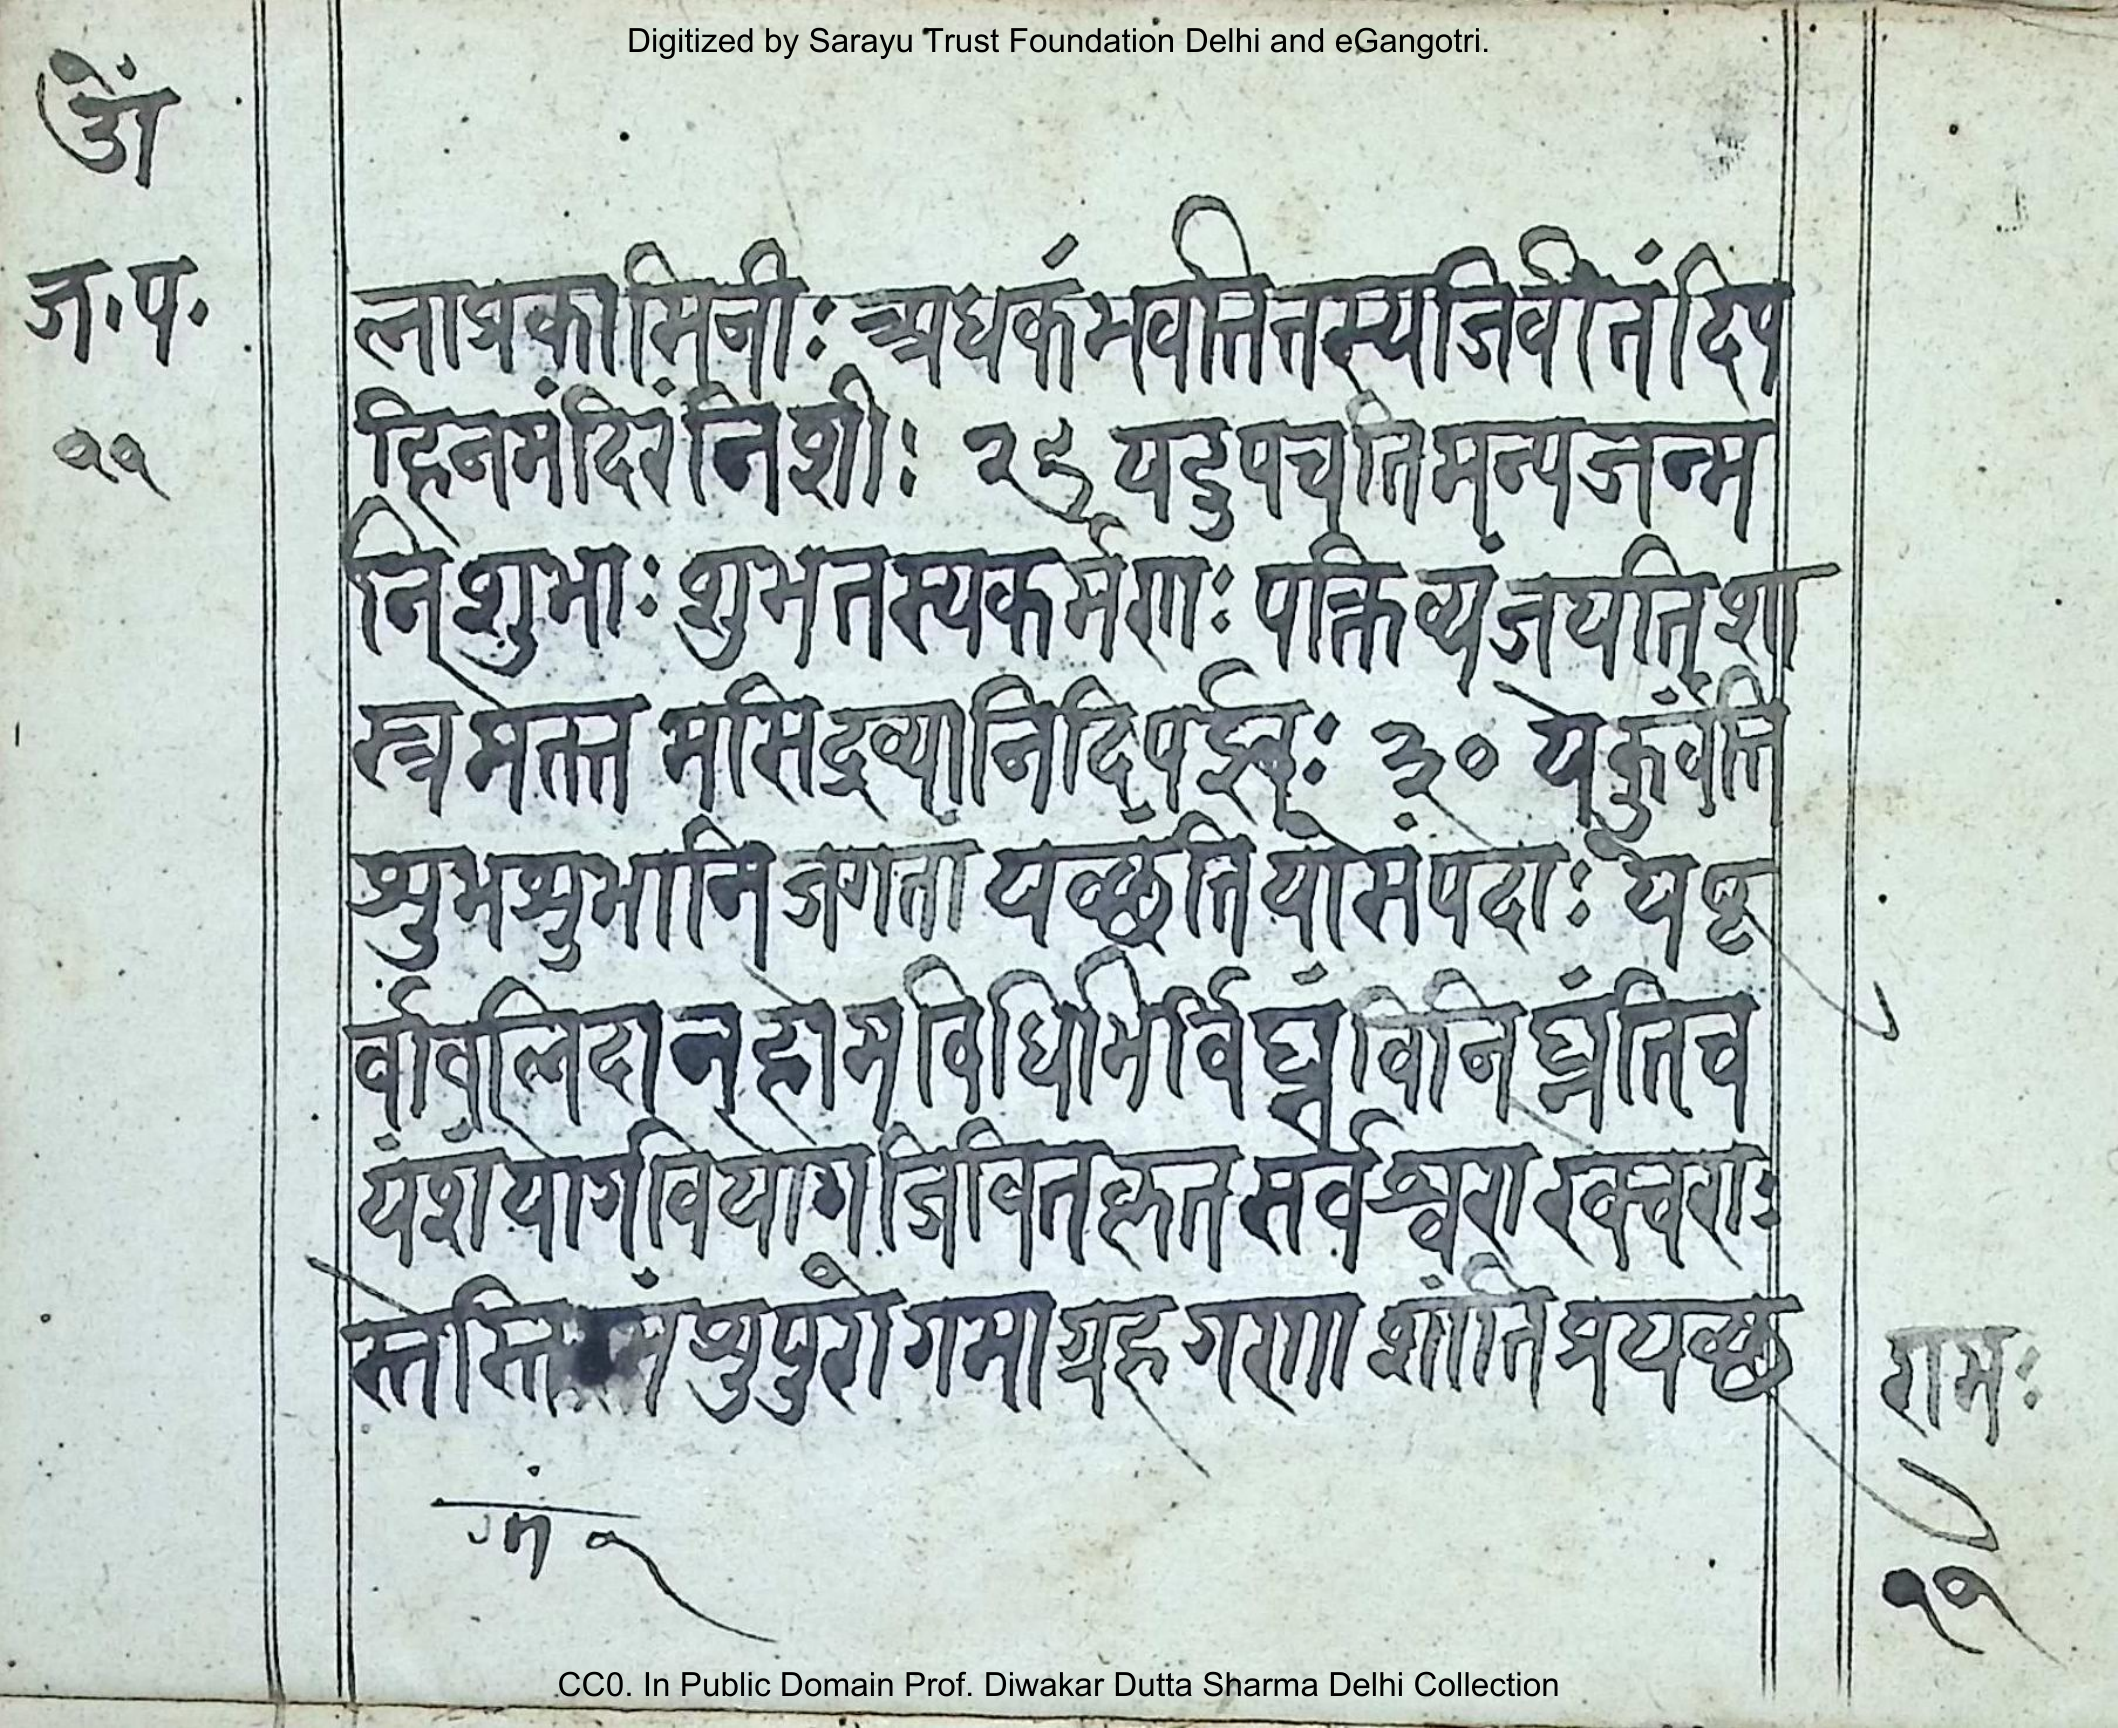 Digitized by Sarayu Trust Foundation Delhi and eGangotri.
ॐ
ज॰प॰
११
लाग्रकामिनीः अधकंमवतितस्यजिवीतंदिप
हिनमंदिरंनिशीः २९ यदुपचतिमन्यजन्म
निशुभाः शुभतस्यकर्मणाः पक्तिव्यंजयतिशा
स्त्रमेतत्त मसिद्रव्यानिदिपईवः ३० येकुर्वंति
श्रुभश्रुभानिजगतां यच्छंतियोसंपदाः येपृ
र्वावलिदानहोमविधिभिर्विघ्नंविनिघ्नंतिच
यंशंयोगवियोगजिवितह्नत सर्वेश्वरा रक्वचराः
स्तेस्ति श्रुपुरोगमाग्रहगणा शांतिप्रयच्छ
रामः
११
CC0. In Public Domain Prof. Diwakar Dutta Sharma Delhi Collection